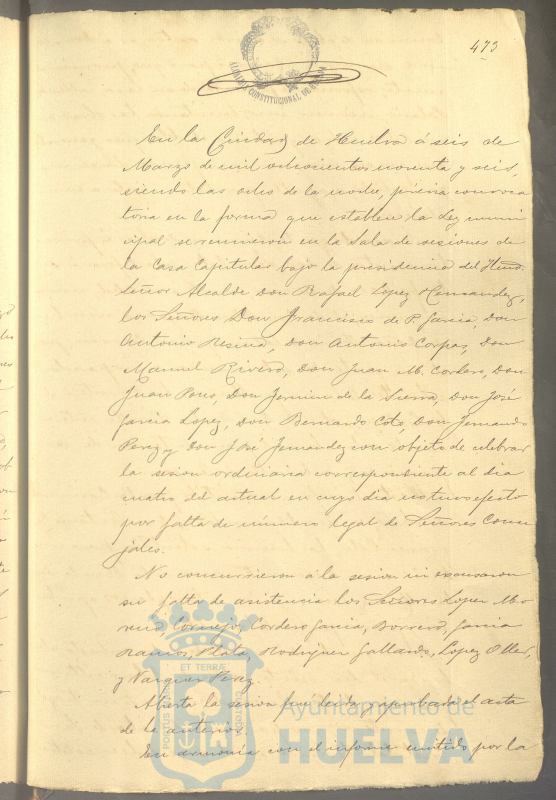 473
ALCALDIA CONSTITUCIONAL DE HUELVA
En la Ciudad de Huelva á seis de
Marzo de mil ochocientos noventa y seis,
siendo las ocho de la noche, prévia convoca
toria en la forma que establece la Ley muni
cipal se reunieron en la Sala de sesiones de
la Casa Capitular bajo la presidencia del Iltmo.
Señor Alcalde Don Rafael Lopez Hernandez,
los Señores Don Francisco de P. Garcia, Don
Antonio Resina, Don Antonio Corpas, Don
Manuel Rivero, Don Juan M. Cordero, Don
Juan Pons, Don Fermin de la Sierra, Don José
Garcia Lopez, Don Bernardo Coto, Don Fernando
Perez y Don José Fernandez con objeto de celebrar
la sesion ordinaria correspondiente al dia
cuatro del actual en cuyo dia no tuvo efecto
por falta de número legal de Señores Conce
jales.
No concurrieron á la sesion ni excusaron
su falta de asistencia los Señores Lopez Mo
reno, Cornejo, Cordero Garcia, Borrero, Garcia
Ramos, Plata, Rodriguez Gallardo, Lopez Oller,
y Vazquez Perez.
Abierta la sesion fue leida y aprobada el acta
de la anterior.
En armonia con el informe emitido por la
PORTUS ET TERRÆ CUSTODIA
Ayuntamiento de
HUELVA